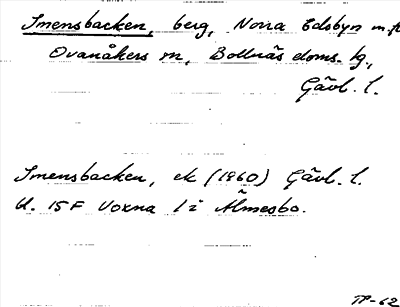 Imensbacken, berg, Norra Edsbyn m.fl
Ovanåkers sn, Bollnäs doms. tg,
Gävl. l.
Imensbacken, ek (1960) Gävl. l.
U. 15F Voxna 1 i Älmesbo.
TP-62